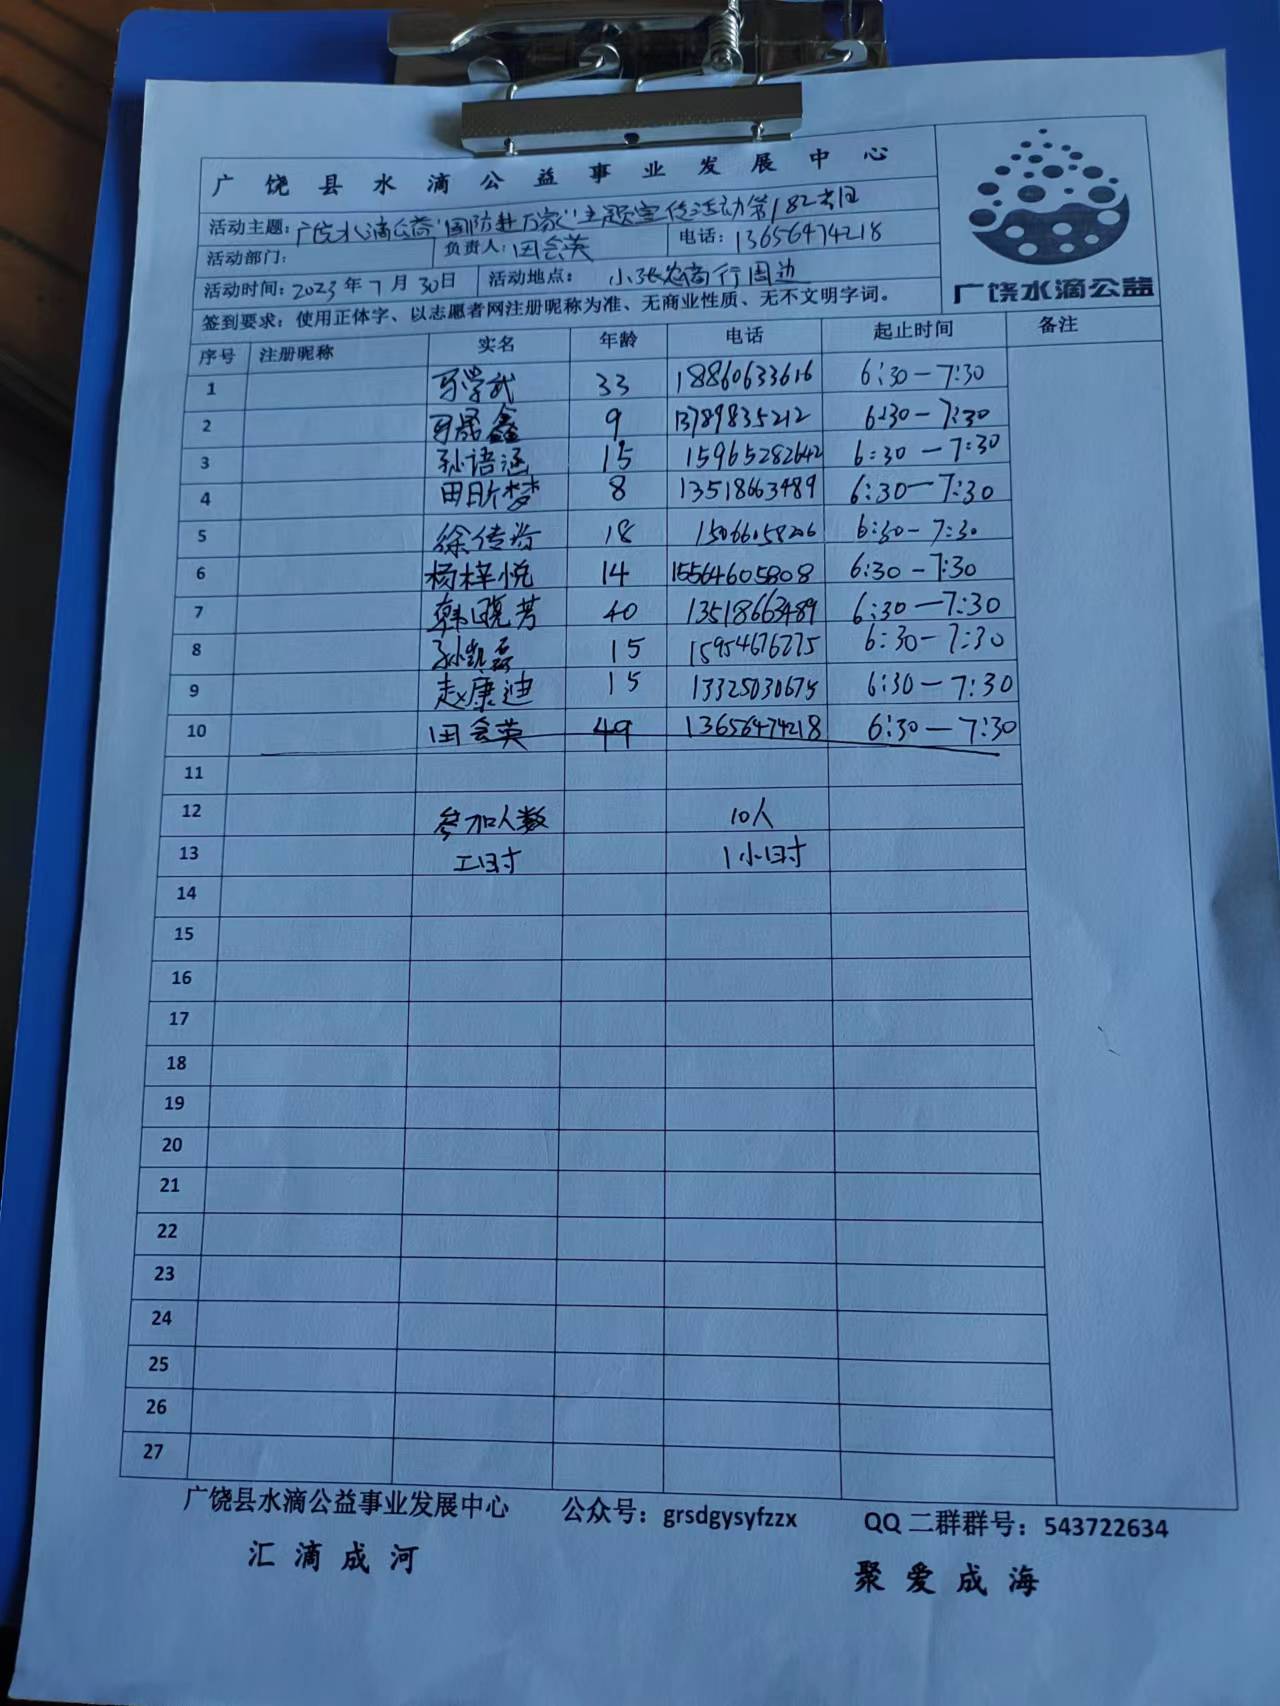 广饶县水滴公益事业发展中心
活动主题：广饶水滴公益"国防进万家"主题宣传活动第182
广饶水滴公益
活动部门： 负责人：田会英 电话：13656474218
活动时间：2023年7月30日 活动地点：小张农商行周边
签到要求：使用正体字、以志愿者网注册昵称为准、无商业性质、无不文明字词。
序号 注册昵称 实名 年龄 电话 起止时间 备注
1 学武 33 18860633616 6:30－7:30
2 晟鑫 9 13789835212 6:30－7:30
3 孙语涵 15 15965282642 6:30－7:30
4 田昕梦 8 13518663489 6:30－7:30
5 徐传 18 6:30－7:30
6 杨梓悦 14 15564605808 6:30－7:30
7 韩晓芳 40 13518663489 6:30－7:30
8 孙凯磊 15 15954676275 6:30－7:30
9 赵康迪 15 13325030675 6:30－7:30
10 田会英 49 13656474218 6:30－7:30
11
12 参加人数 10人
13 工时 1小时
14
15
16
17
18
19
20
21
22
23
24
25
26
27
广饶县水滴公益事业发展中心 公众号：grsdgysyfzzx QQ二群群号：543722634
汇滴成河 聚爱成海